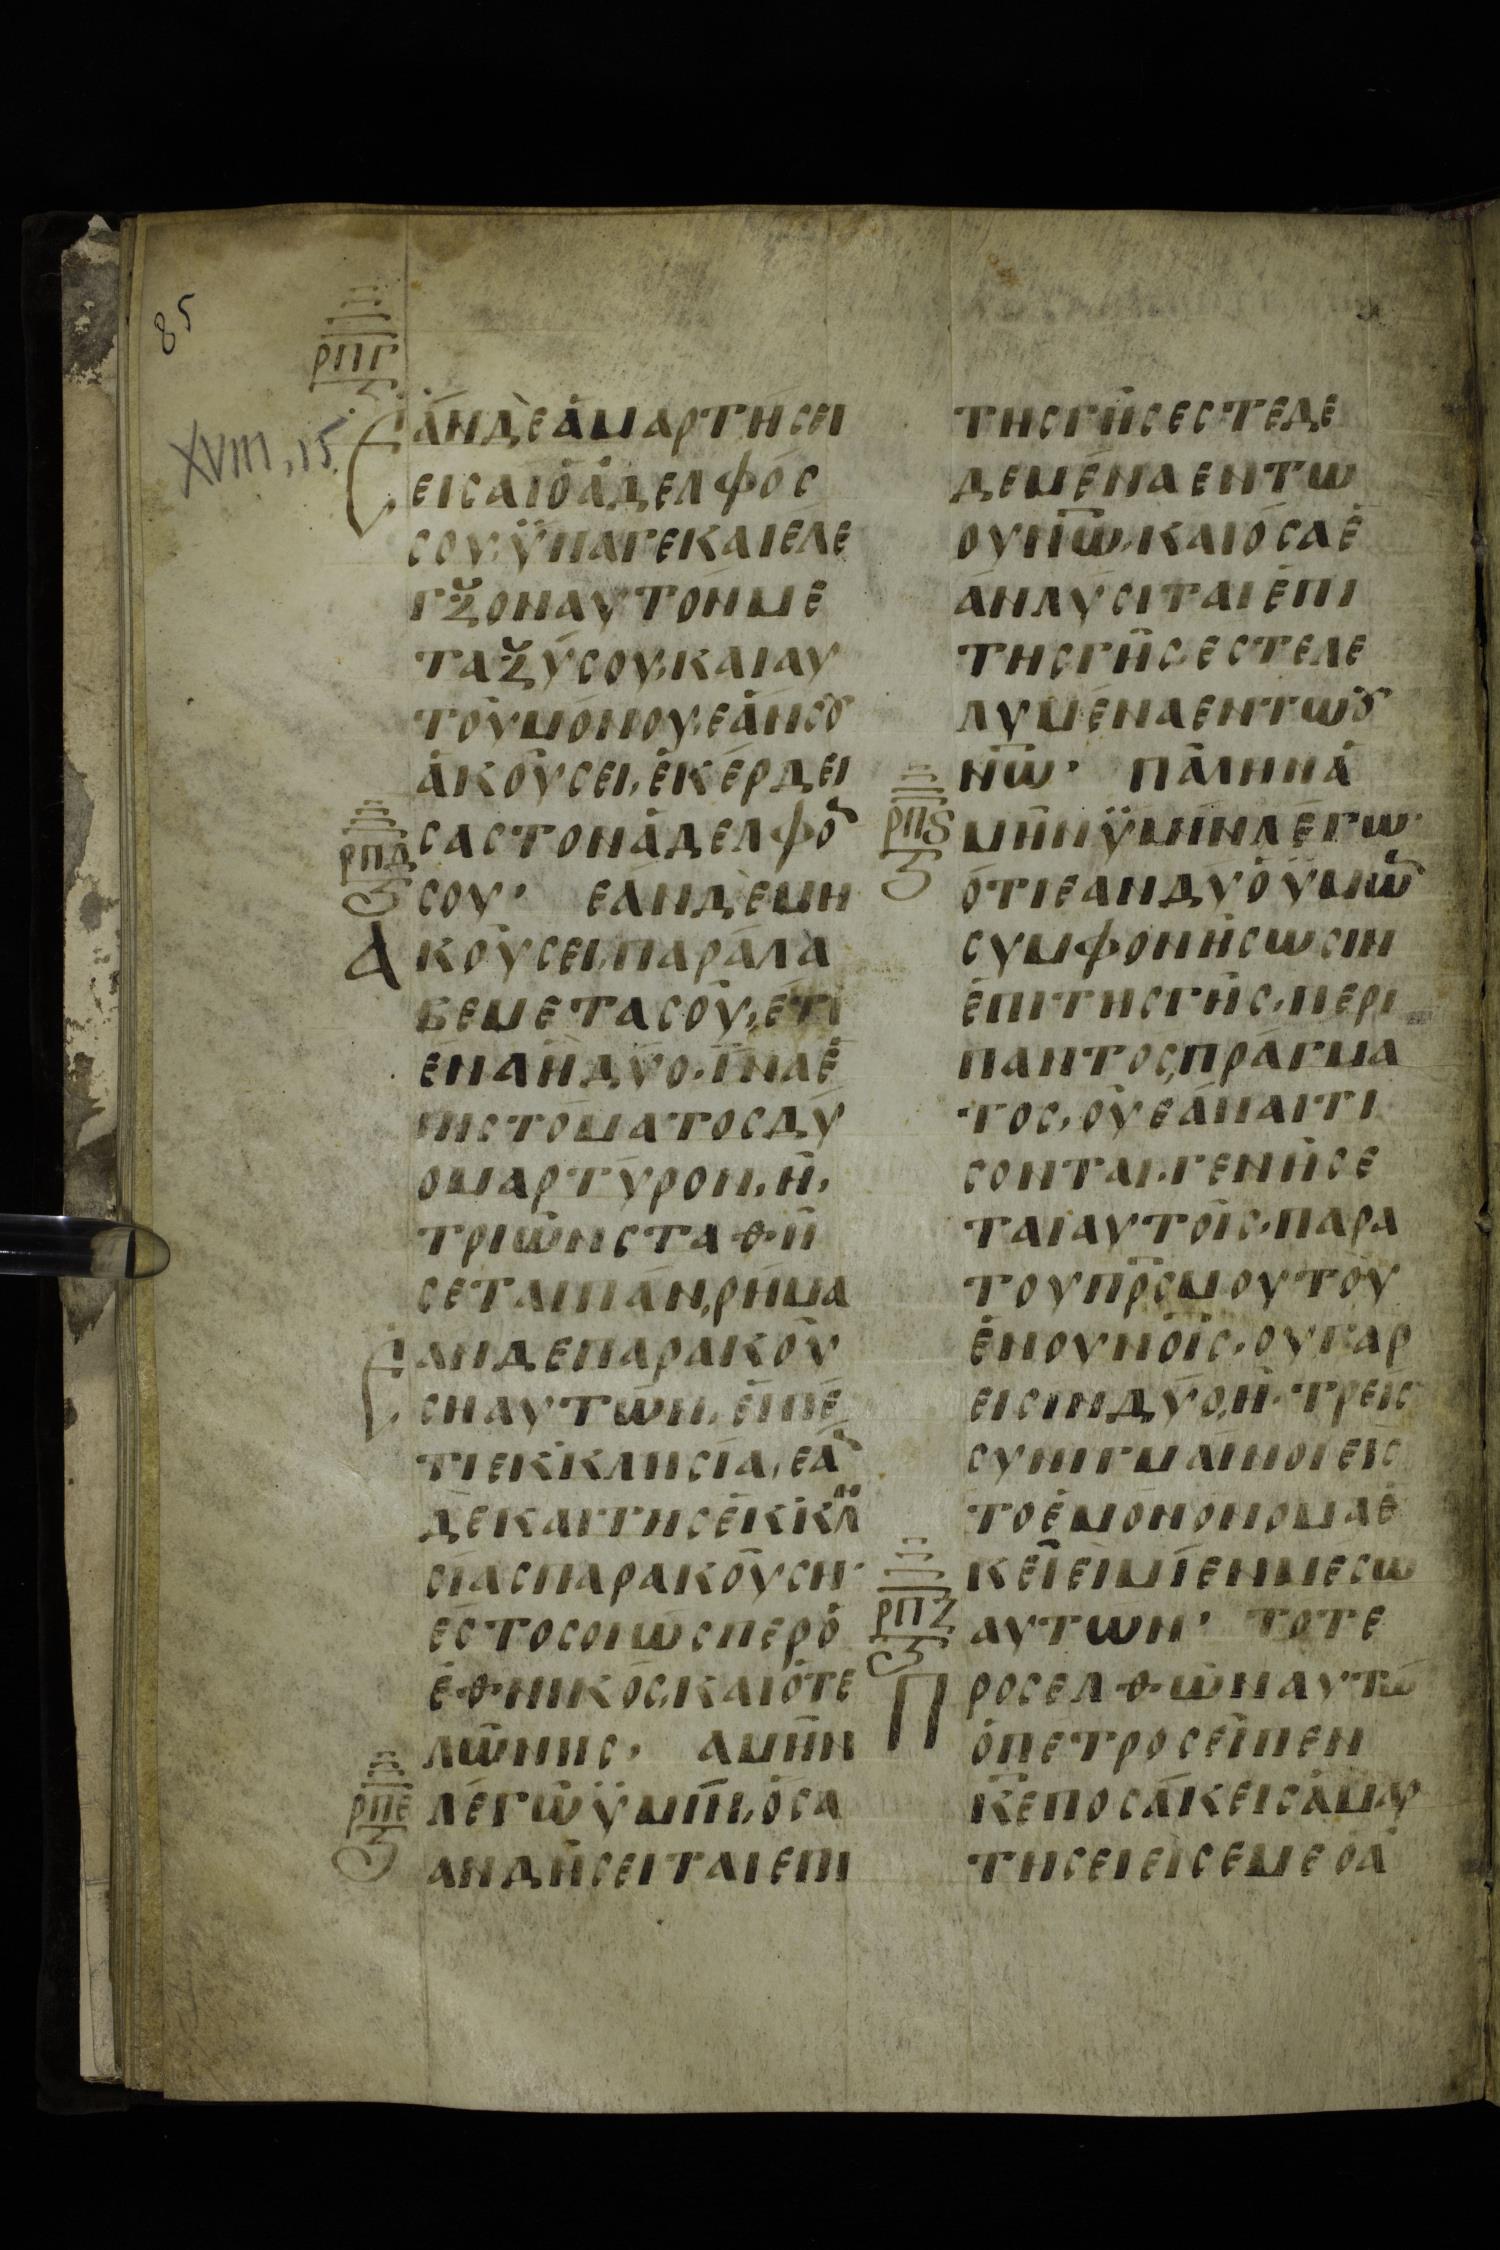 85
ΡΠΓ
Ζ
XVIII, 15.
ΕΑΝΔΕΑΜΑΡΤΗΣΕΙ
ΕΙΣΑΙΟΑΔΕΛΦΟΣ
ΣΟΥ, ΫΠΑΓΕΚΑΙΕΛΕ
ΓΞΟΝΑΥΤΟΝΜΕ
ΤΑΞΥΣΟΥ, ΚΑΙΑΥ
ΤΟΥΜΟΝΟΥ, ΕΑΝΣΟΥ
ΑΚΟΥΣΕΙ, ΕΚΕΡΔΕΙ
ΡΠΔ
Ζ
ΣΑΣΤΟΝΑΔΕΛΦΟ
ΣΟΥ, ΕΑΝΔΕΜΗ
ΑΚΟΥΣΕΙ, ΠΑΡΑΛΑ
ΒΕΜΕΤΑΣΟΥ, ΕΤΙ
ΕΝΑΗΔΥΟ· ΪΝΑΕ
ΠΙΣΤΟΜΑΤΟΣΔΥ
ΟΜΑΡΤΥΡΟΝ, Η,
ΤΡΙΩΝΣΤΑΘΗ
ΣΕΤΑΙΠΑΝ, ΡΗΜΑ
ΕΑΝΔΕΠΑΡΑΚΟΥ
ΣΗΑΥΤΩΝ, ΕΙΠΕ
ΤΙΕΚΚΛΗΣΙΑ, ΕΑ
ΔΕΚΑΙΤΗΣΕΚΚΛ
ΣΙΑΣΠΑΡΑΚΟΥΣΗ·
ΕΣΤΟΣΟΙΩΣΠΕΡΟ
ΕΘΝΙΚΟΣ, ΚΑΙΟΤΕ
ΛΩΝΗΣ, ΑΜΗΝ
ΡΠΕ
Ζ
ΛΕΓΩΫΜΙΝ, ΟΣΑ
ΑΝΔΗΣΕΙΤΑΙΕΠΙ
ΤΗΣΓΗΣΕΣΤΕΔΕ
ΔΕΜΕΝΑΕΝΤΩ
ΟΥΝΩ, ΚΑΙΟΣΑΕ
ΑΝΛΥΣΙΤΑΙΕΠΙ
ΤΗΣΓΗΣ, ΕΣΤΕΛΕ
ΛΥΜΕΝΑΕΝΤΩΟΥ
ΝΩ, ΠΑΛΗΝΑ
ΡΠϚ
Ζ
ΜΗΝΫΜΙΝΛΕΓΩ·
ΟΤΙΕΑΝΔΥΟΫΜΩ
ΣΥΜΦΟΝΗΣΩΣΙΝ
ΕΠΙΤΗΣΓΗΣ, ΠΕΡΙ
ΠΑΝΤΟΣ, ΠΡΑΓΜΑ
ΤΟΣ, ΟΥΕΑΝΑΙΤΙ
ΣΟΝΤΑΙ· ΓΕΝΗΣΕ
ΤΑΙΑΥΤΟΙΣ, ΠΑΡΑ
ΤΟΥΠΡΣΜΟΥΤΟΥ
ΕΝΟΥΝΟΙΣ, ΟΥΓΑΡ
ΕΙΣΙΝΔΥΟ, Η· ΤΡΕΙΣ
ΣΥΝΙΓΜΑΙΝΟΙΕΙΣ
ΤΟΕΜΟΝΟΝΟΜΑΕ
ΚΕΙΕΙΜΙΕΝΜΕΣΩ
ΡΠΖ
Ζ
ΑΥΤΩΝ, ΤΟΤΕ
ΠΡΟΣΕΛΘΩΝΑΥΤΩ
ΟΠΕΤΡΟΣΕΙΠΕΝ
ΚΕΠΟΣΑΚΕΙΣΑΜΑΡ
ΤΗΣΕΙΕΙΣΕΜΕΟΑ